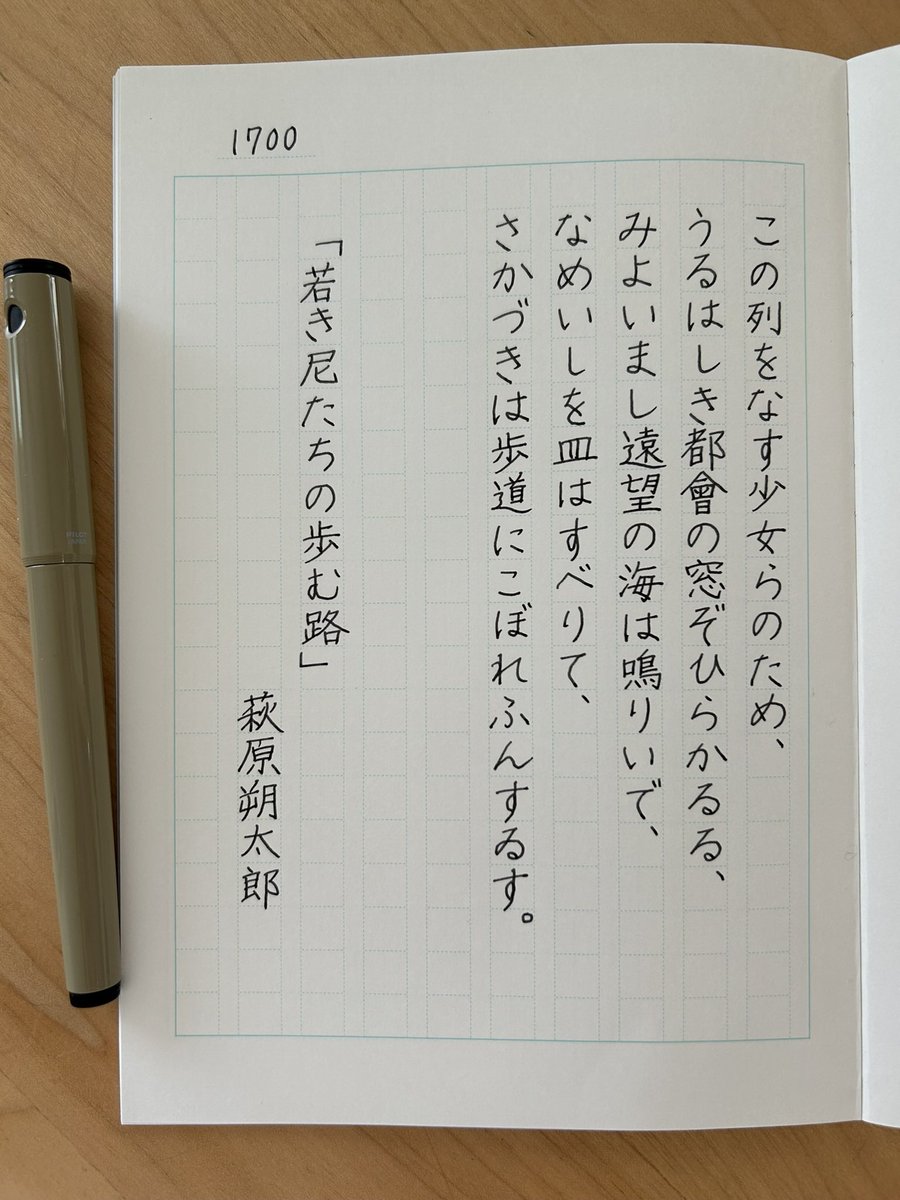 1700
この列をなす少女らのため、
うるはしき都會の窓ぞひらかるる、
みよいまし遠望の海は鳴りいで、
なめいしを皿はすべりて、
さかづきは歩道にこぼれふんするゐす。
「若き尼たちの歩む路」
萩原朔太郎